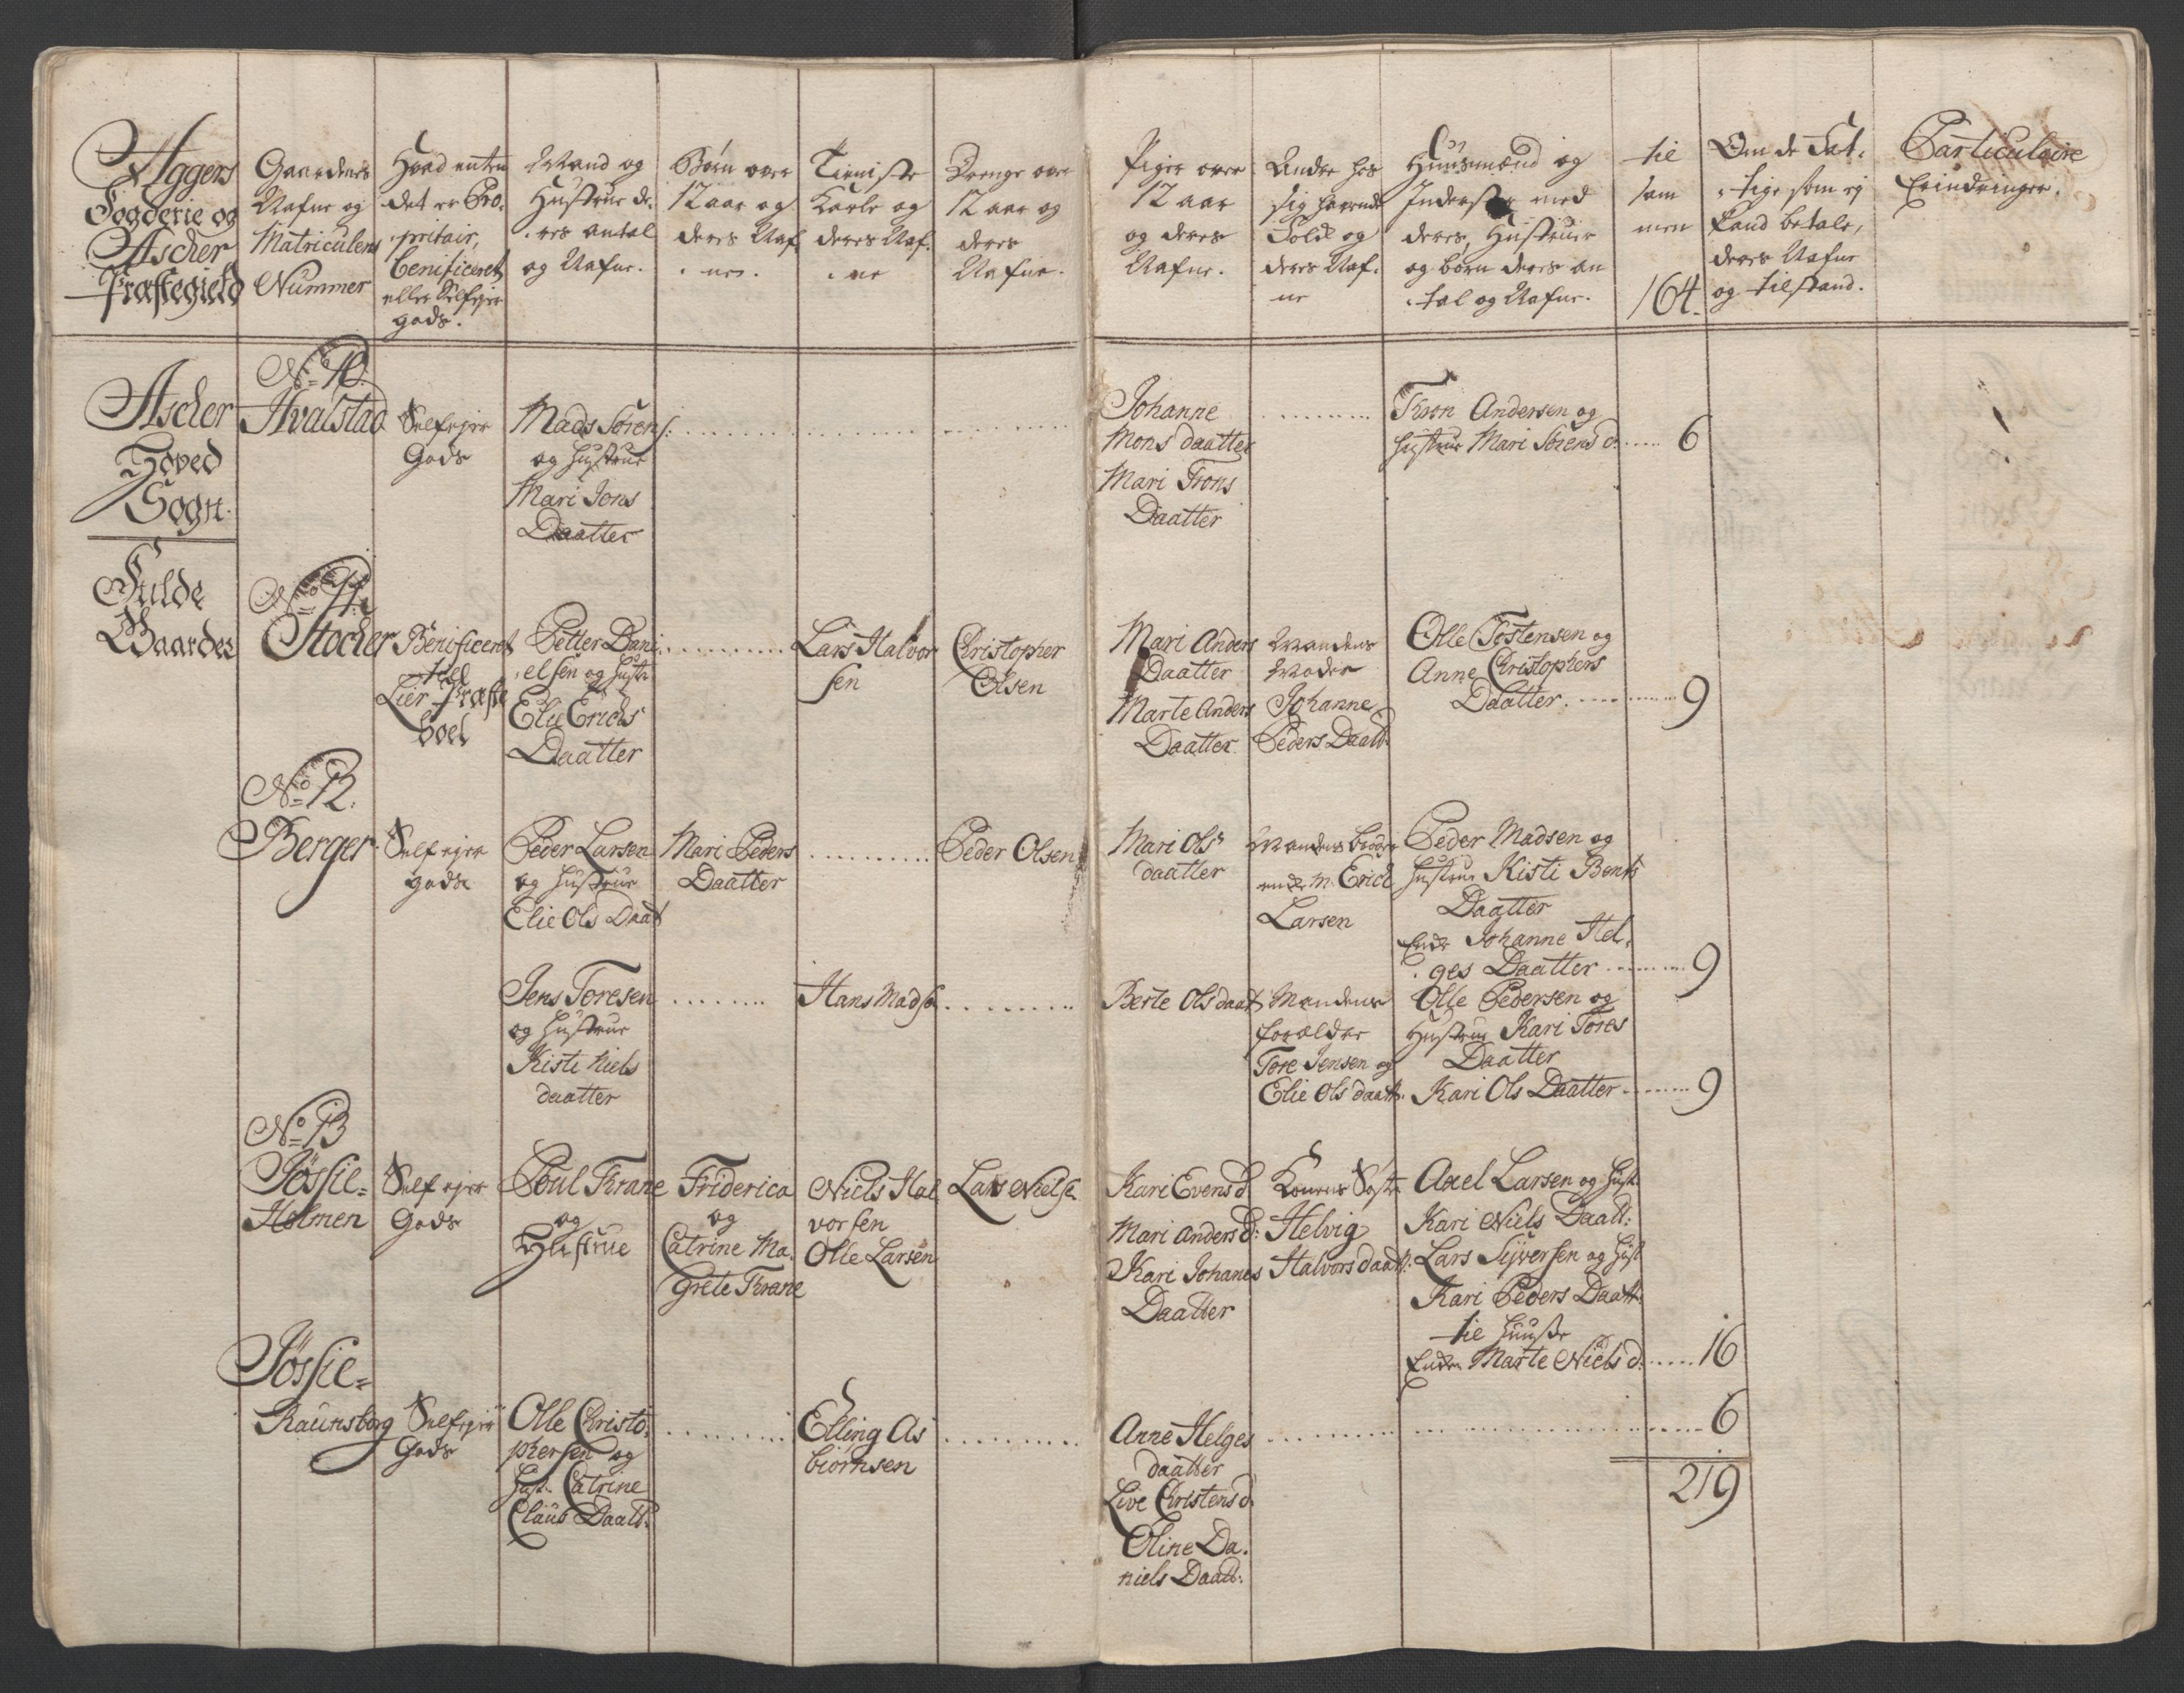 Aggers
Fogderie og
Ascher
Præstegield
Gaardenes
Nafne og
Matriculens
Nummer
Hvad enten
det er Pro-
pritair,
benificeret
eller Selfejer
gods.
Mand og
Hustrue de-
res antal
og Nafne.
Børn over
12 aar og
deres Naf
ne.
Tieniste
Karle og
deres Naf-
ne
Drenge over
12 aar og
deres
Nafne.
Piger over
12 aar
og deres
Nafne.
Andre hos
sig havende
Folk og
deres Naf-
ne
Huusmænd og
Inderster med
deres, Hustruer
og børn deres an
tal og Nafne.
til
sam
men
164.
Om de Fat-
tige som ej
kand betale,
deres Nafne
og tilstand.
Particulaire
Erindringer.
Ascher
Hoved
Sogn.
Fulde
Gaarder
No 10.
Hvalstad
Selfejer
Gods
Mads Sørens:
og Hustrue
Mari Jons
Daatter
Johanne
Mons daatter
Mari Trons
Daatter
Tron Andersen og
hustrue Mari Sørens d: 6
No 11.
Stocher
Benificeret
til
Lier Præste
boel
Petter Dani-
elsen og Hustr
Elie Erichs
Daatter
Lars Halvor
sen
Christopher
Olsen
Mari Anders
Daatter
Marte Anders
Daatter
Mandens
Moder
Johanne
Peders Daatt:
Olle Tostensen og
Anne Christophers
Daatter. 9
No 12.
Berger
Selfejer
gods
Peder Larsen
og Hustrue
Elie Ols Daat
Mari Peders
Daatter
Peder Olsen
Mari Ols
daatter
Mandens broder
Erich
Larsen
Peder Madsen og
Hustrue Kisti Bents
Daatter
Enke Johanne Hel-
ges Daatter 9
Jens Toresen
og Hustrue
Kisti Niels
daatter
Hans Mads:
Berte Ols daat
Mandens
forælder
Tore Jensen og
Elie Ols daatt:
Olle Pedersen og
Hustrue Kari Tores
Daatter
Kari Ols Daatter 9
No 13
Jøssie-
Holmen
Selfejer
Gods
Poul Krane
og
Hustrue
Friderica
og
Catrine Ma-
grete Krane
Niels Hal
vorsen
Olle Larsen
Lars Niels:
Kari Evens d:
Mari Anders d:
Kari Johanes
Daatter
Konens Søster
Helvig
Halvors daatt:
Axel Larsen og Hust:
Kari Niels Daatt:
Lars Sijversen og Hust
Kari Peders Daatt:
til Huuse
Enken Marte Niels d: 16
Jøssie-
Raunsborg
Selfejer
Gods
Olle Christo-
phersen og
Hust: Catrine
Claus Daatt:
Elling As
biornsen
Anne Helges
daatter
Live Christens d:
Oline Da-
niels Daatt:
6
219